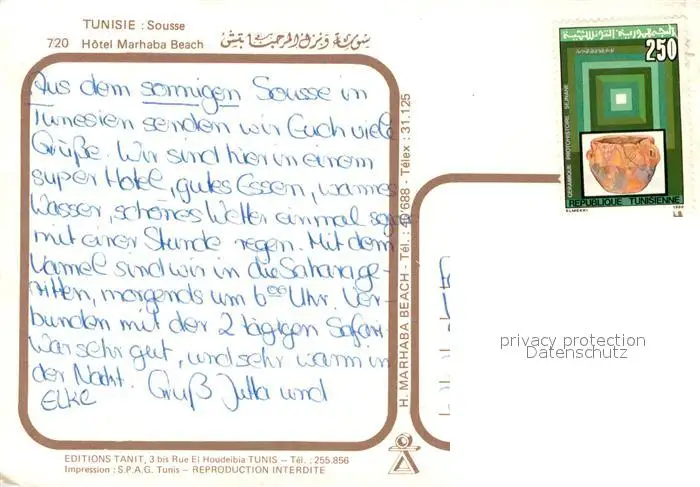 TUNISIE : Sousse
720 Hôtel Marhaba Beach
Aus dem sonnigen Sousse in
Tunesien senden wir Euch viele
Grüße. Wir sind hier in einem
super Hotel, gutes Essen, warmes
Wasser, schönes Wetter einmal sogar
mit einer Stunde regen. Mit dem
Kamel sind wir in die Sahara ge-
ritten, morgends um 6 00 Uhr. Ver-
bunden mit der 2 tägigen Safari.
War sehr gut, und sehr warm in
der Nacht. Gruß Jutta und
Elke
H. MARHABA BEACH - Tél. : 40/688 - Télex : 31.125
250
CERAMIQUE PROTOHISTOIRE SEJNANE
REPUBLIQUE TUNISIENNE
ELMEKKI
privacy protection
Datenschutz
EDITIONS TANIT, 3 bis Rue El Houdeibia TUNIS – Tél. : 255.856
Impression : S.P.A.G. Tunis – REPRODUCTION INTERDITE